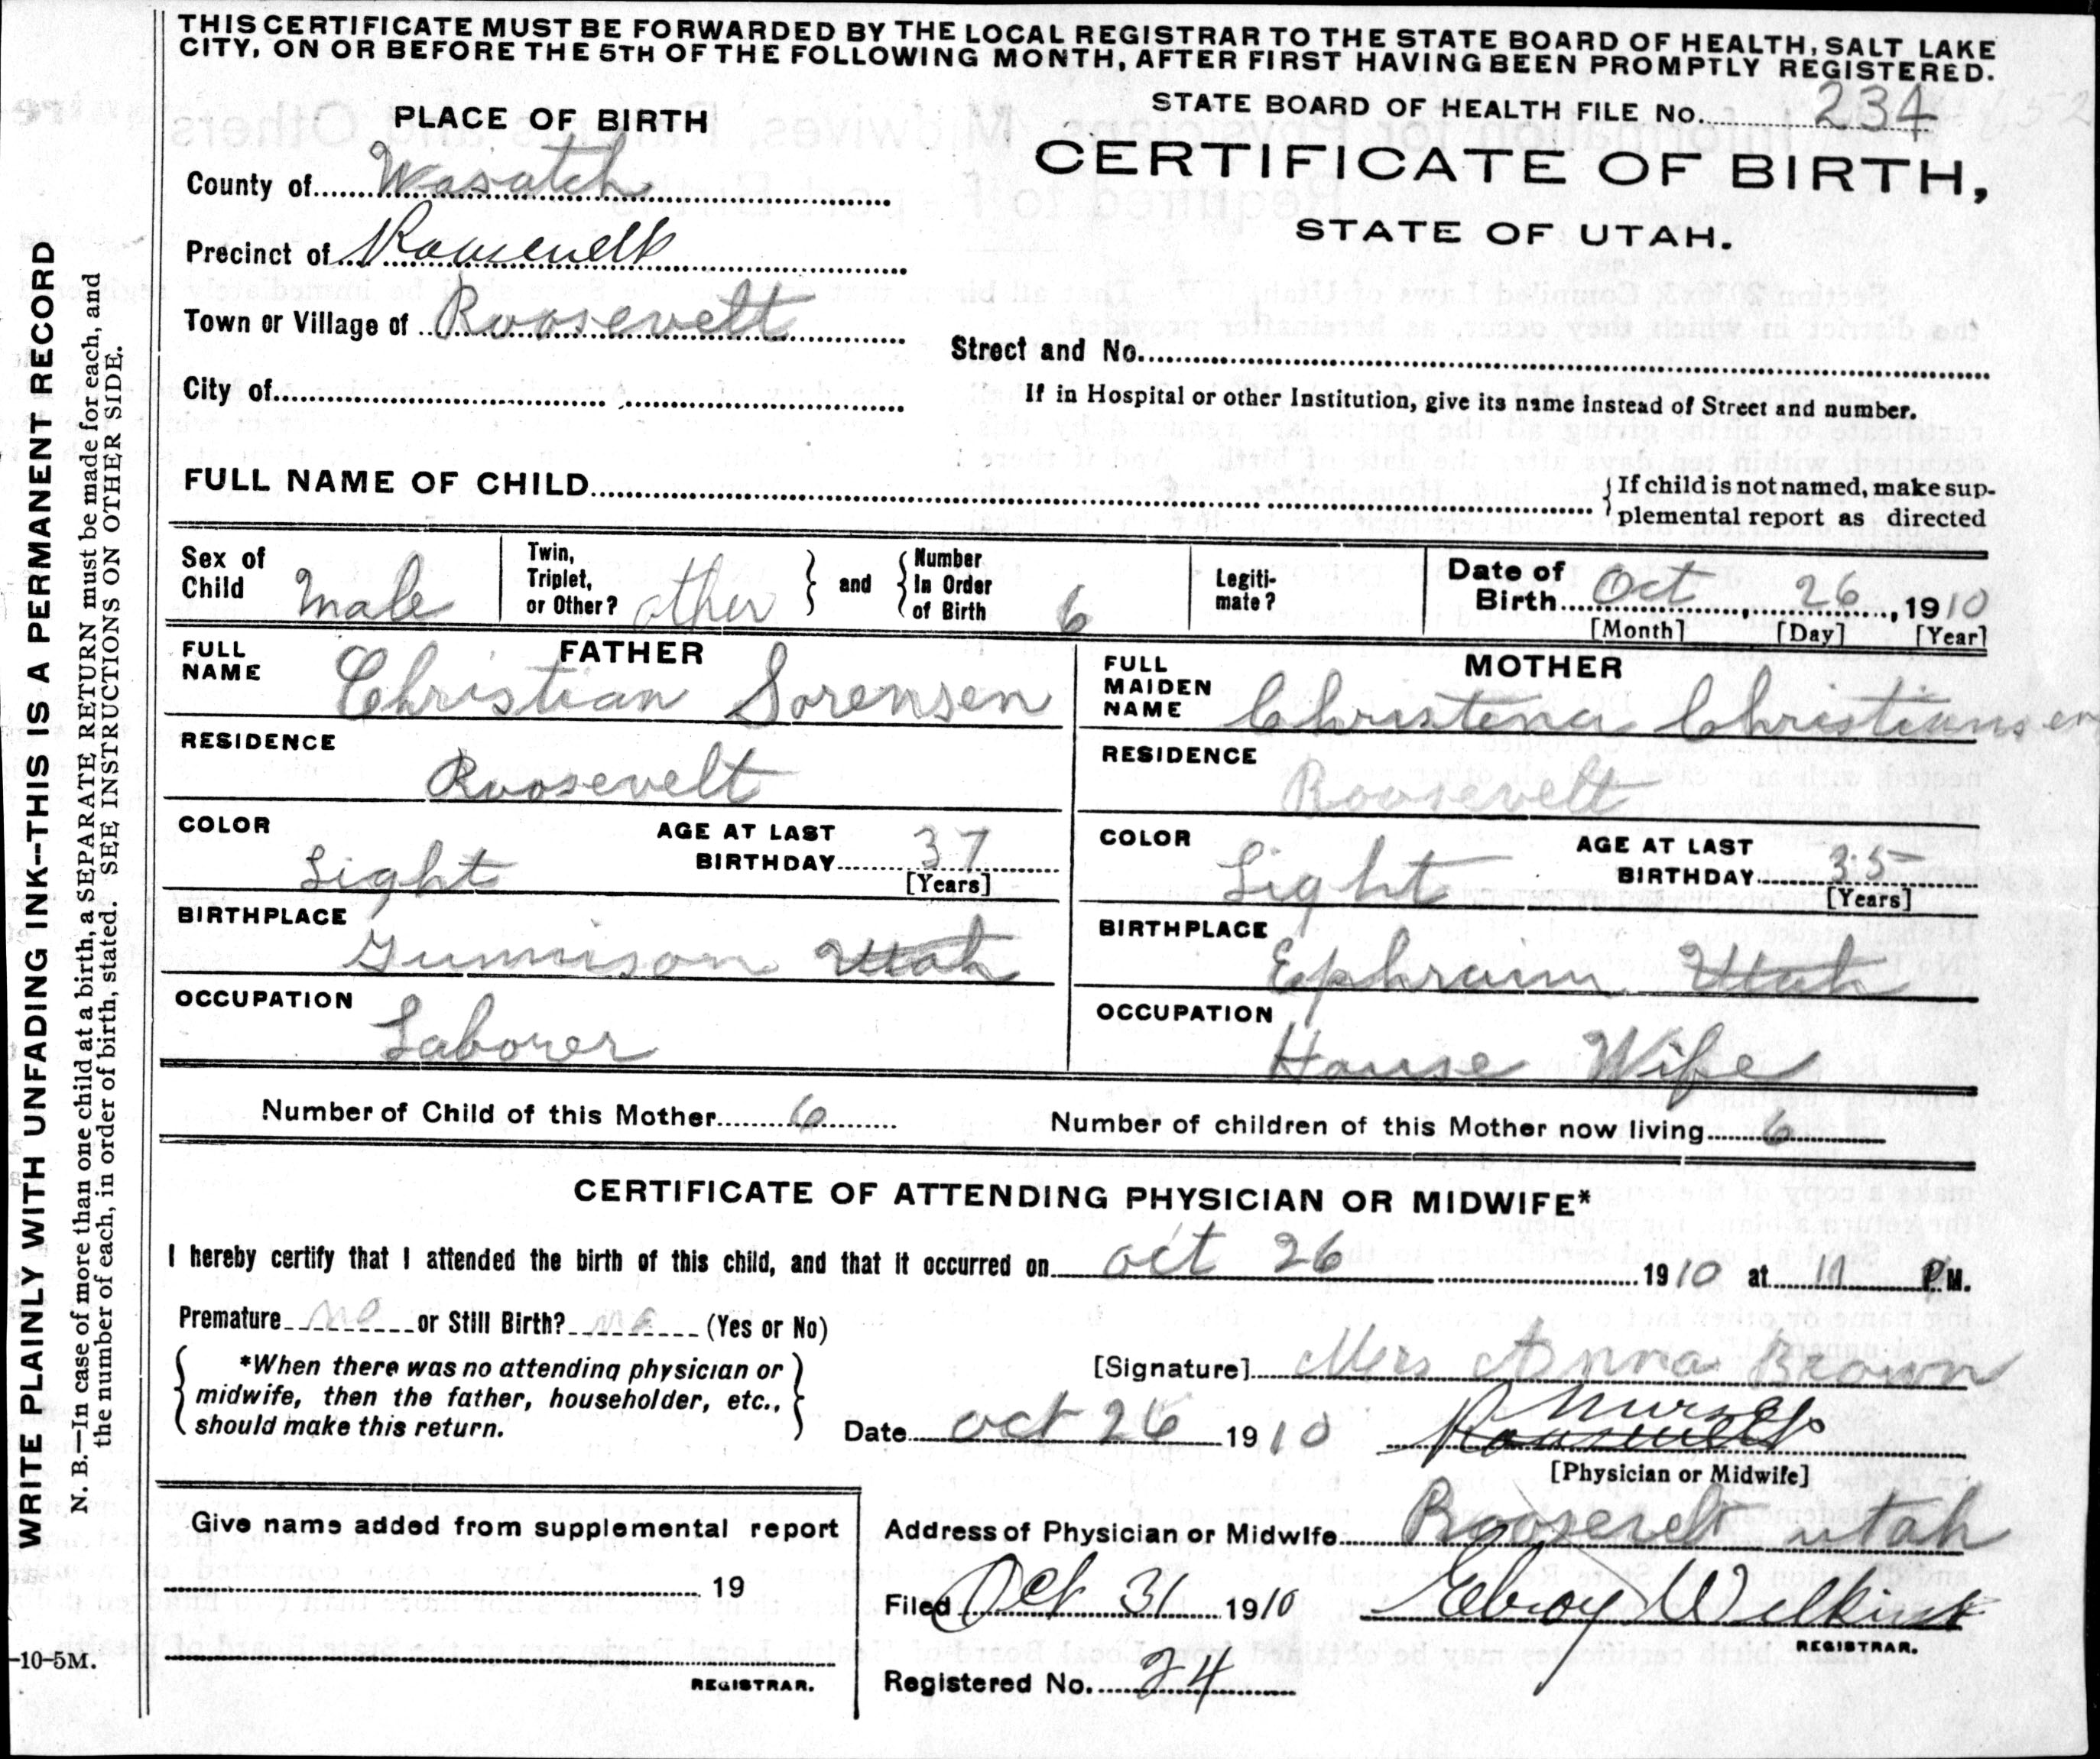 THIS CERTIFICATE MUST BE FORWARDED BY THE LOCAL REGISTRAR TO THE STATE BOARD OF HEALTH, SALT LAKE
CITY, ON OR BEFORE THE 5TH OF THE FOLLOWING MONTH, AFTER FIRST HAVING BEEN PROMPTLY REGISTERED.
STATE BOARD OF HEALTH FILE No. 234
PLACE OF BIRTH
CERTIFICATE OF BIRTH,
STATE OF UTAH.
County of Wasatch
Precinct of Roosevelt
Town or Village of Roosevelt
Street and No.
City of
If in Hospital or other Institution, give its name instead of Street and number.
FULL NAME OF CHILD
If child is not named, make sup-
plemental report as directed
Sex of
Child Male
Twin,
Triplet,
or Other? other
and
Number
In Order
of Birth 6
Legiti-
mate?
Date of
Birth Oct 26, 1910
[Month] [Day] [Year]
FATHER
FULL
NAME Christian Sorensen
RESIDENCE
Roosevelt
COLOR Light
AGE AT LAST
BIRTHDAY 37
[Years]
BIRTHPLACE
Gunnison Utah
OCCUPATION
Laborer
MOTHER
FULL
MAIDEN
NAME Christena Christiansen
RESIDENCE
Roosevelt
COLOR Light
AGE AT LAST
BIRTHDAY 35
[Years]
BIRTHPLACE
Ephraim Utah
OCCUPATION
House Wife
Number of Child of this Mother 6
Number of children of this Mother now living 6
CERTIFICATE OF ATTENDING PHYSICIAN OR MIDWIFE*
I hereby certify that I attended the birth of this child, and that it occurred on oct 26 1910 at 11 P M.
Premature no or Still Birth? no (Yes or No)
*When there was no attending physician or
midwife, then the father, householder, etc.,
should make this return.
[Signature] Mrs Anna Brown
Nurse
Date oct 26 1910 Roosevelt
[Physician or Midwife]
Address of Physician or Midwife Roosevelt utah
Filed Oct 31 1910 Elroy Wilkins
REGISTRAR.
Registered No. 24
Give name added from supplemental report
19
REGISTRAR.
-10-5M.
WRITE PLAINLY WITH UNFADING INK--THIS IS A PERMANENT RECORD
N. B.—In case of more than one child at a birth, a SEPARATE RETURN must be made for each, and
the number of each, in order of birth, stated. SEE INSTRUCTIONS ON OTHER SIDE.